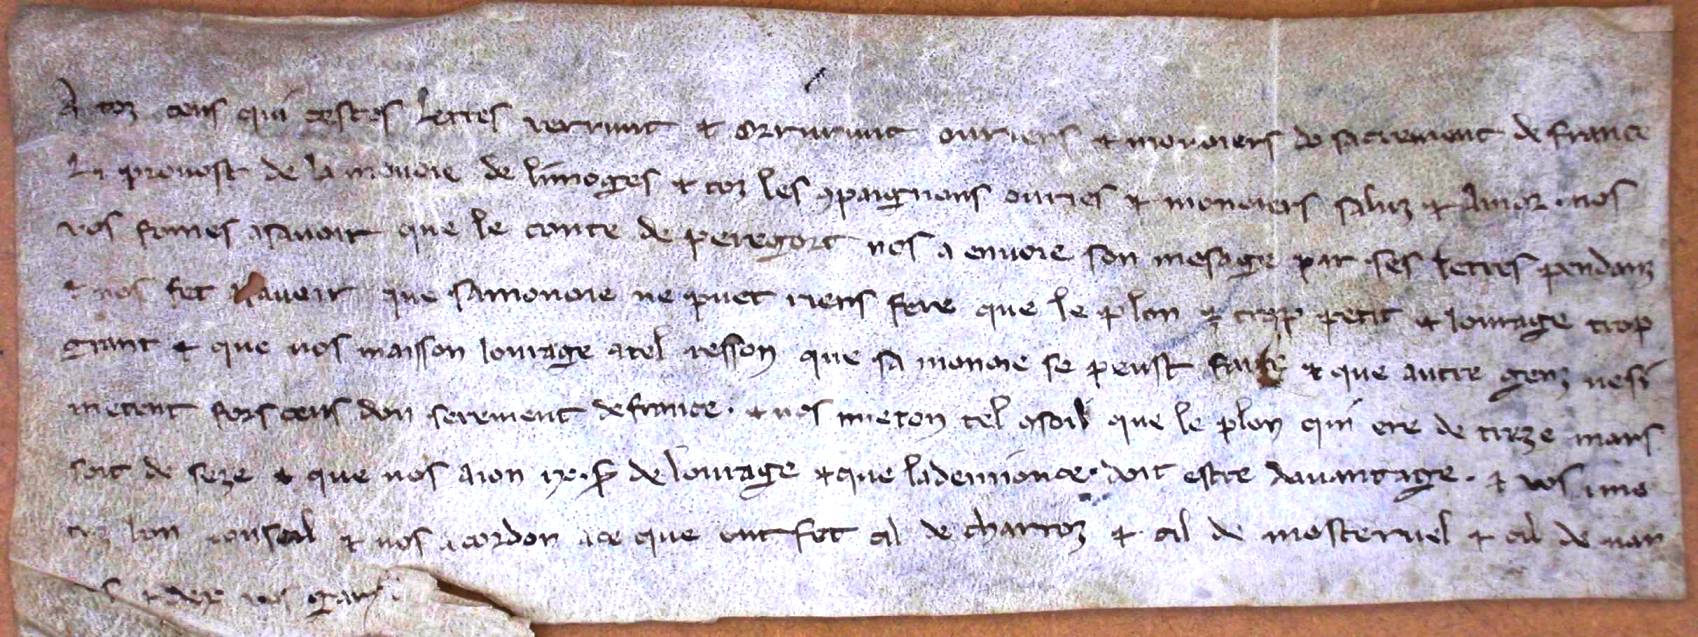 A toz ceus qui cestes lettres verrunt et orrunt ouriers et monoiers do sacrement de france
Li provost de la monoie de limoges et toz les 9paignons ouriers et monoiers saluz et amor. nos
vos fomes asavoir que le conte de peregort nos a envoie son mesage par ses lettres pendanz
et nos fet savoir que sa monoie ne puet riens fere que le plon est trop petit et lourage trop
grant et que nos maisson lourage a tel resson que sa monoie se peust faire et que autre genz nesi
metent fors ceus dou serement de france. et nos meton tel 9soil que le plon qui ere de treze mars
soit de seze et que nos aion de lourage et que lademionce doit estre davantage. et vos i me
tez bon conseil et nos acordon a ce que ont fet cil de charroz et cil de mosteruel et cil de nan
vos gart